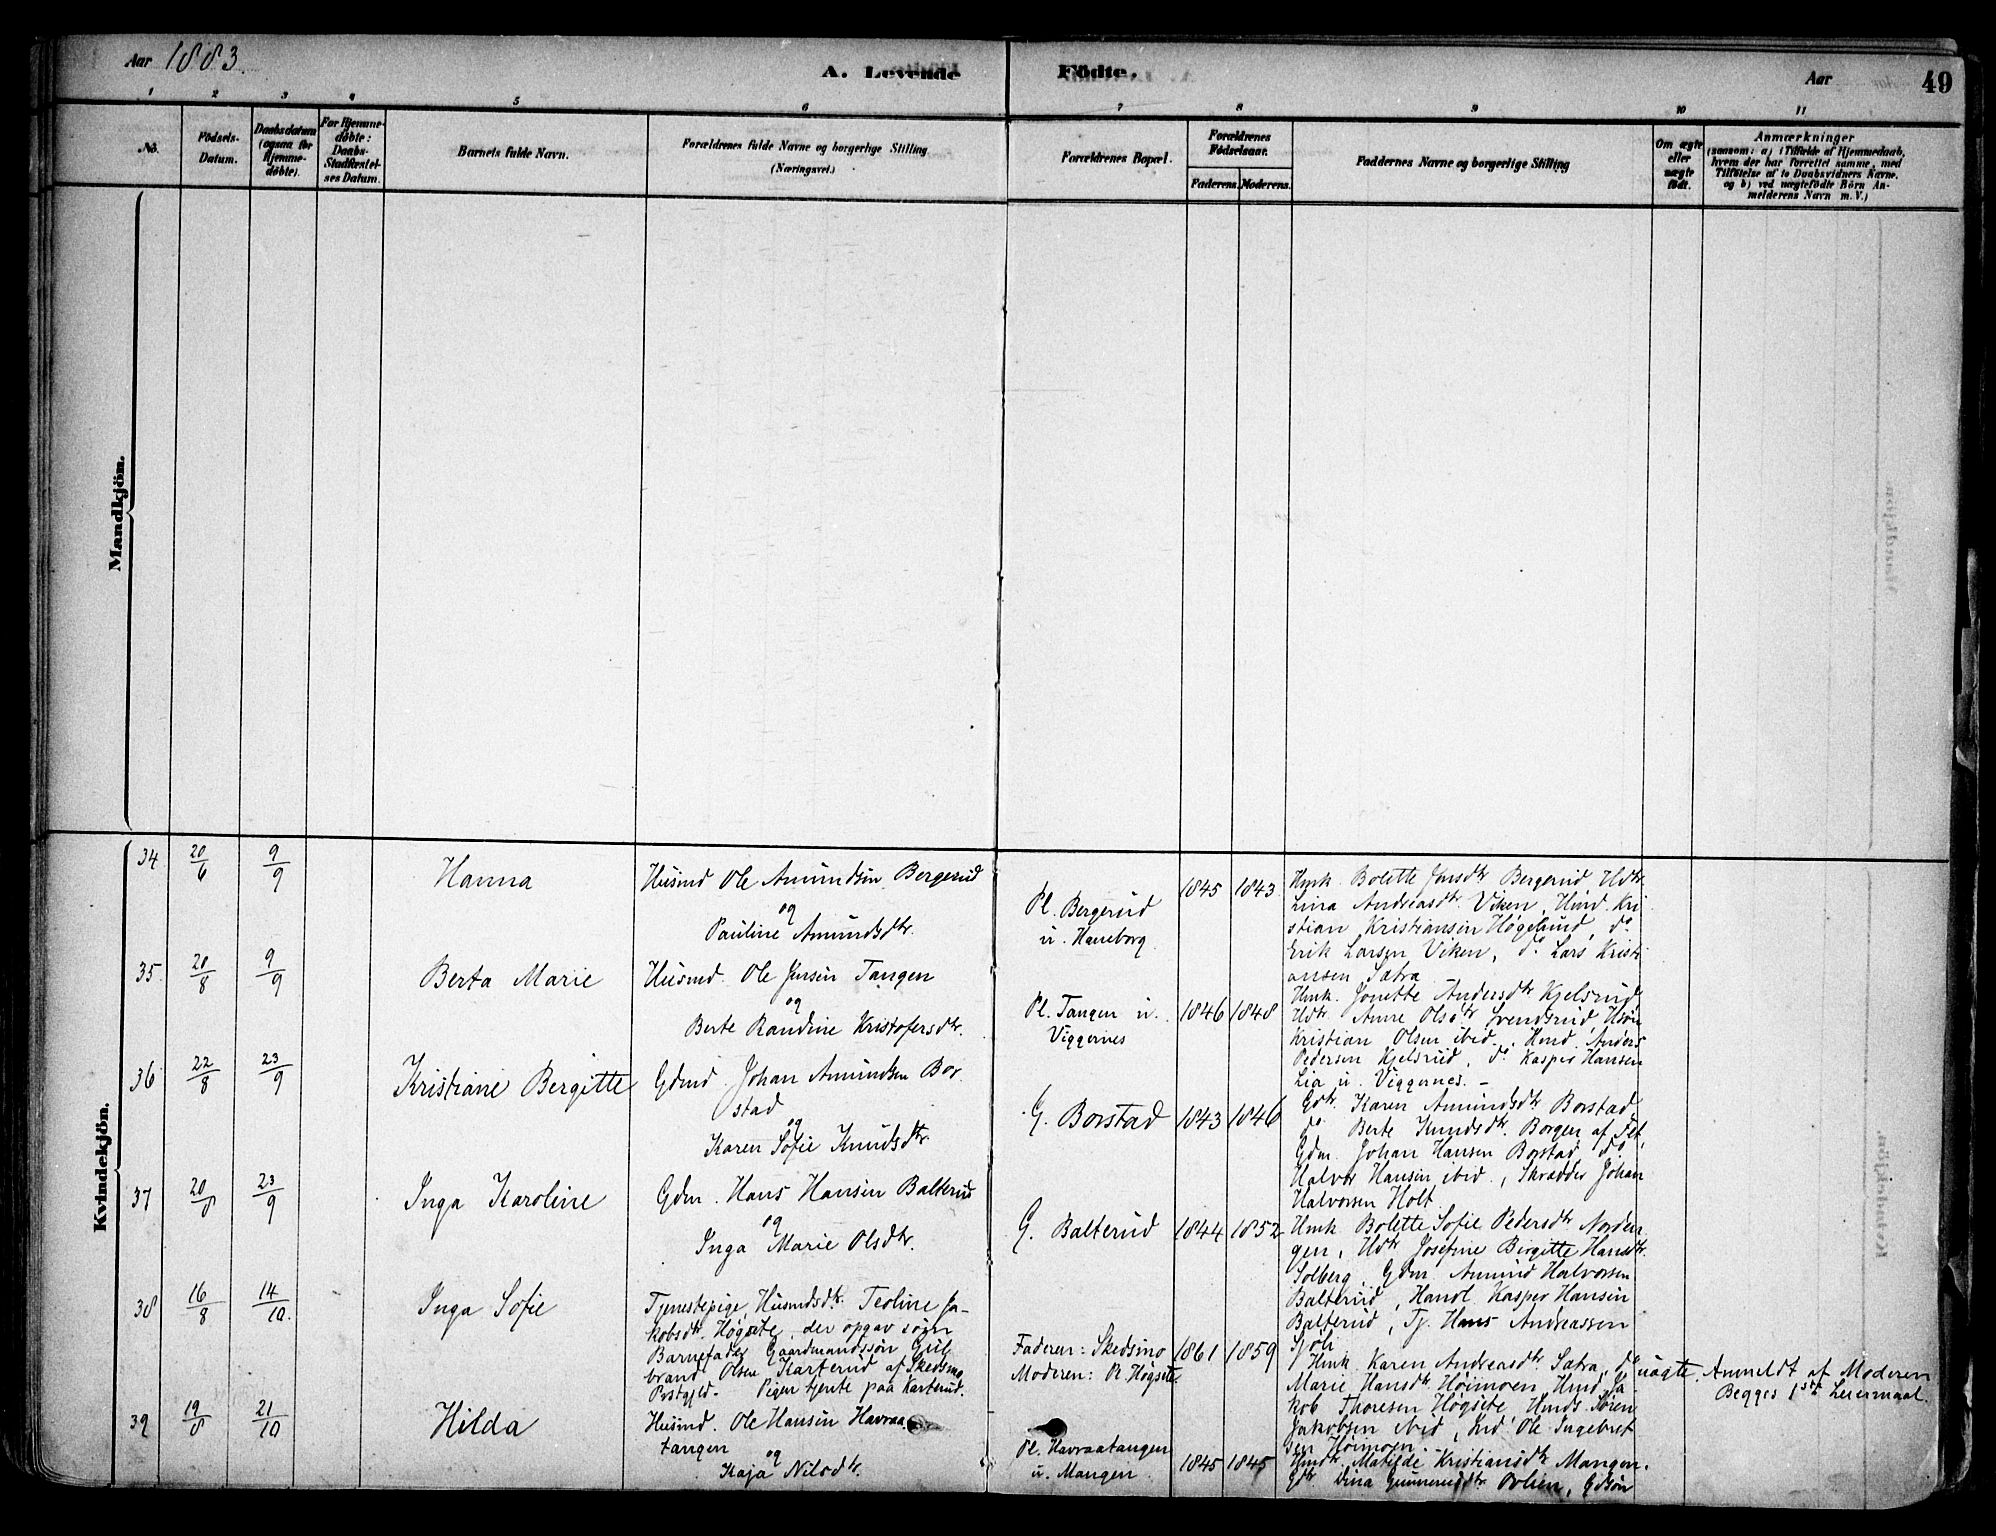 Aar 1883. A. Levende Fødte. Aar 49
1 2 3 4 5 6 7 8 9 10 11
No. Födsels-Datum. Daabsdatum (ogsaa for Hjemme-döbte). For Hjemme-döbte: Daabs-Stadfæstel-ses Datum. Barnets fulde Navn. Forældrenes fulde Navne og borgerlige Stilling (Næringsvei.) Forældrenes Bopæl. Forældrenes Födselsaar. Faderens. Moderens. Faddernes Navne og borgerlige Stilling Om ægte eller uægte födt. Anmærkninger (saasom: a) i Tilfælde af Hjemmedaab, hvem der har forrettet samme, med Tilføielse af to Daabsvidners Navne. og b) ved uægtefödte Börn An-melderens Navn m. V.)
Mandkjön.
Kvindekjön.
34 20/6 9/9 Hanna
Husmd Ole Amundsen Bergerud
og
Pauline Amundsdtr.
Pl. Bergerud
u. Haneborg
1845 1843
Hmk. Bolette Jonsdtr Bergerud Hdtr.
Lina Andreasdtr Viken, Hmd. Kri
stian Kristiansen Høgelund, do
Erik Larsen Viken, do Lars Kristi
ansen Sætra
35 20/8 9/9 Berta Marie
Husmd. Ole Jensen Tangen
og
Berte Randine Kristofersdtr.
Pl. Tangen u.
Viggernes
1846 1848
Hmk. Jonette Andersdtr Kjelsrud
Hdtr. Anne Olsdtr Svendsrud, Hsøn
Kristian Olsen ibid., Hmd. Anders
Pedersen Kjelsrud, do Kasper Hansen
Lia u. Viggernes. –
36 22/8 23/9 Kristiane Bergitte
Gdmd. Johan Amundsen Bor
stad
og
Karen Sofie Knudsdtr.
G. Borstad
1843 1846
Gdtr. Karen Amundsdtr Borstad
do Berte Knudsdtr. Borgen af Fet,
Gdm. Johan Hansen Borstad do
Halvor Hansen ibid., Skrædder Johan
Halvorsen Holt
37 20/8 23/9 Inga Karoline
Gdm. Hans Hansen Balterud
og
Inga Marie Olsdtr.
G. Balterud
1844 1852
Hmk. Bolette Sofie Pedersdtr Norden
gen, Hdtr. Josefine Birgitte Hansdtr.
Solberg, Gdm. Amund Halvorsen
Balterud, Handl. Kasper Hansen
Balterud, Tj. Hans Andreassen
Sjøli
38 16/8 14/10. Inga Sofie
Tjenestepige, Husmdsdtr. Teoline Ja-
kobsdtr. Høgsete, der opgav som
Barnefader Gaardmandssøn Gul
brand Olsen Karterud af Skedsmo
Postgjld. Pigen tjente paa Karterud.
Faderen: Skedsmo
Moderen: P. Høgsete
1861 1859
Hmk. Karen Andreasdtr Sætra, do
Marie Hansdtr Høimoen, Hmd. Ja-
kob Thoresen Høgsete, Hmds. Søren
Jakobsen ibid, Ind. Ole Ingebret
sen Høimoen
uægte. Anmeldt af Moderen
Begges 1ste Leiermaal.
39 19/8 21/10 Hilda
Husmd. Ole Hansen Havraa
tangen
og
Kaja Nilsdtr.
Pl. Havraatangen
u. Mangen
1845 1845
Hmdtr. Matilde Kristiansdtr Mangen.
Gdtr. Dina Gunnerusdtr Ovlien, Gdsøn